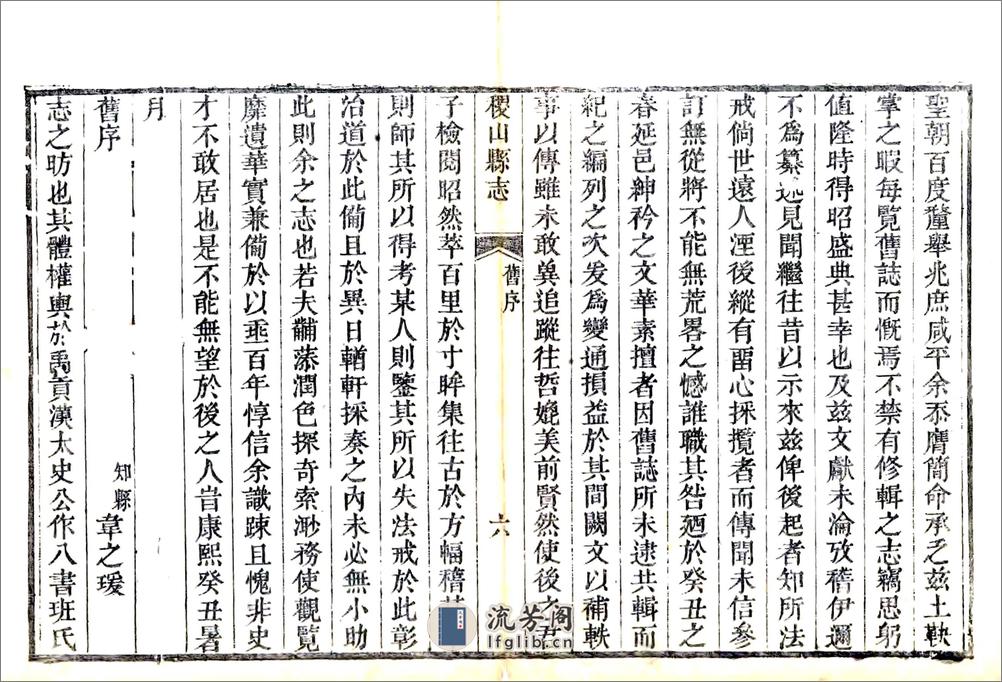 聖朝百度釐舉兆庶咸平余忝膺簡命承乏茲土鞅
掌之暇每覽舊誌而慨焉不禁有修輯之志竊思躬
值隆時得昭盛典甚幸也及茲文獻未淪攷稽伊邇
不爲纂述見聞繼往昔以示來茲俾後起者知所法
戒倘世遠人湮後縱有畱心採攬者而傳聞未信參
訂無從將不能無荒畧之憾誰職其咎廼於癸丑之
春延邑紳衿之文華素擅者因舊誌所未逮共輯而
紀之編列之次发爲變通損益於其間闕文以補軼
事以傳雖未敢冀追蹤往哲媲美前賢然使後之君
稷山縣志
舊序
六
子檢閱昭然萃百里於寸眸集往古於方幅稽
則師其所以得考某人則鑒其所以失法戒於此彰
治道於此備且於異日輶軒採奏之內未必無小助
此則余之志也若夫黼藻潤色探奇索渺務使觀覽
靡遺華實兼備於以垂百年惇信余識踈且愧非史
才不敢居也是不能無望於後之人旹康熙癸丑暑
月
舊序
知縣 章之瑗
志之昉也其體權輿於禹貢漢太史公作八書班氏
流芳阁
lfglib.cn